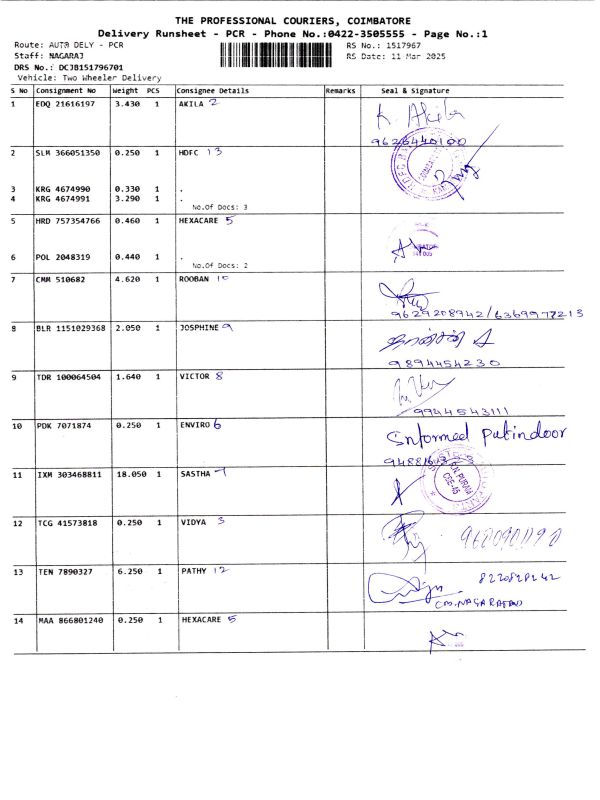 THE PROFESSIONAL COURIERS, COIMBATORE
Delivery Runsheet - PCR - Phone No.:0422-3505555 - Page No.:1
Route: AUTO DELY - PCR RS No.: 1517967
Staff: NAGARAJ RS Date: 11-Mar-2025
DRS No.: DCJB151796701
Vehicle: Two Wheeler Delivery
S No Consignment No Weight PCS Consignee Details Remarks Seal & Signature
1 EDQ 21616197 3.430 1 AKILA 2 K. Akila
9626440100
2 SLM 366051350 0.250 1 HDFC 13
3 KRG 4674990 0.330 1 .
4 KRG 4674991 3.290 1 .
No.Of Docs: 3
5 HRD 757354766 0.460 1 HEXACARE 5
6 POL 2048319 0.440 1 .
No.Of Docs: 2
7 CMM 510682 4.620 1 ROOBAN 10
9629208942/6369977213
8 BLR 1151029368 2.050 1 JOSPHINE 9
9894454230
9 TDR 100064504 1.640 1 VICTOR 8
9944543111
10 PDK 7071874 0.250 1 ENVIRO 6 Informed Putindoor
11 IXM 303468811 18.050 1 SASTHA 7
12 TCG 41573818 0.250 1 VIDYA 3
13 TEN 7890327 6.250 1 PATHY 12 8220828242
14 MAA 866801240 0.250 1 HEXACARE 5